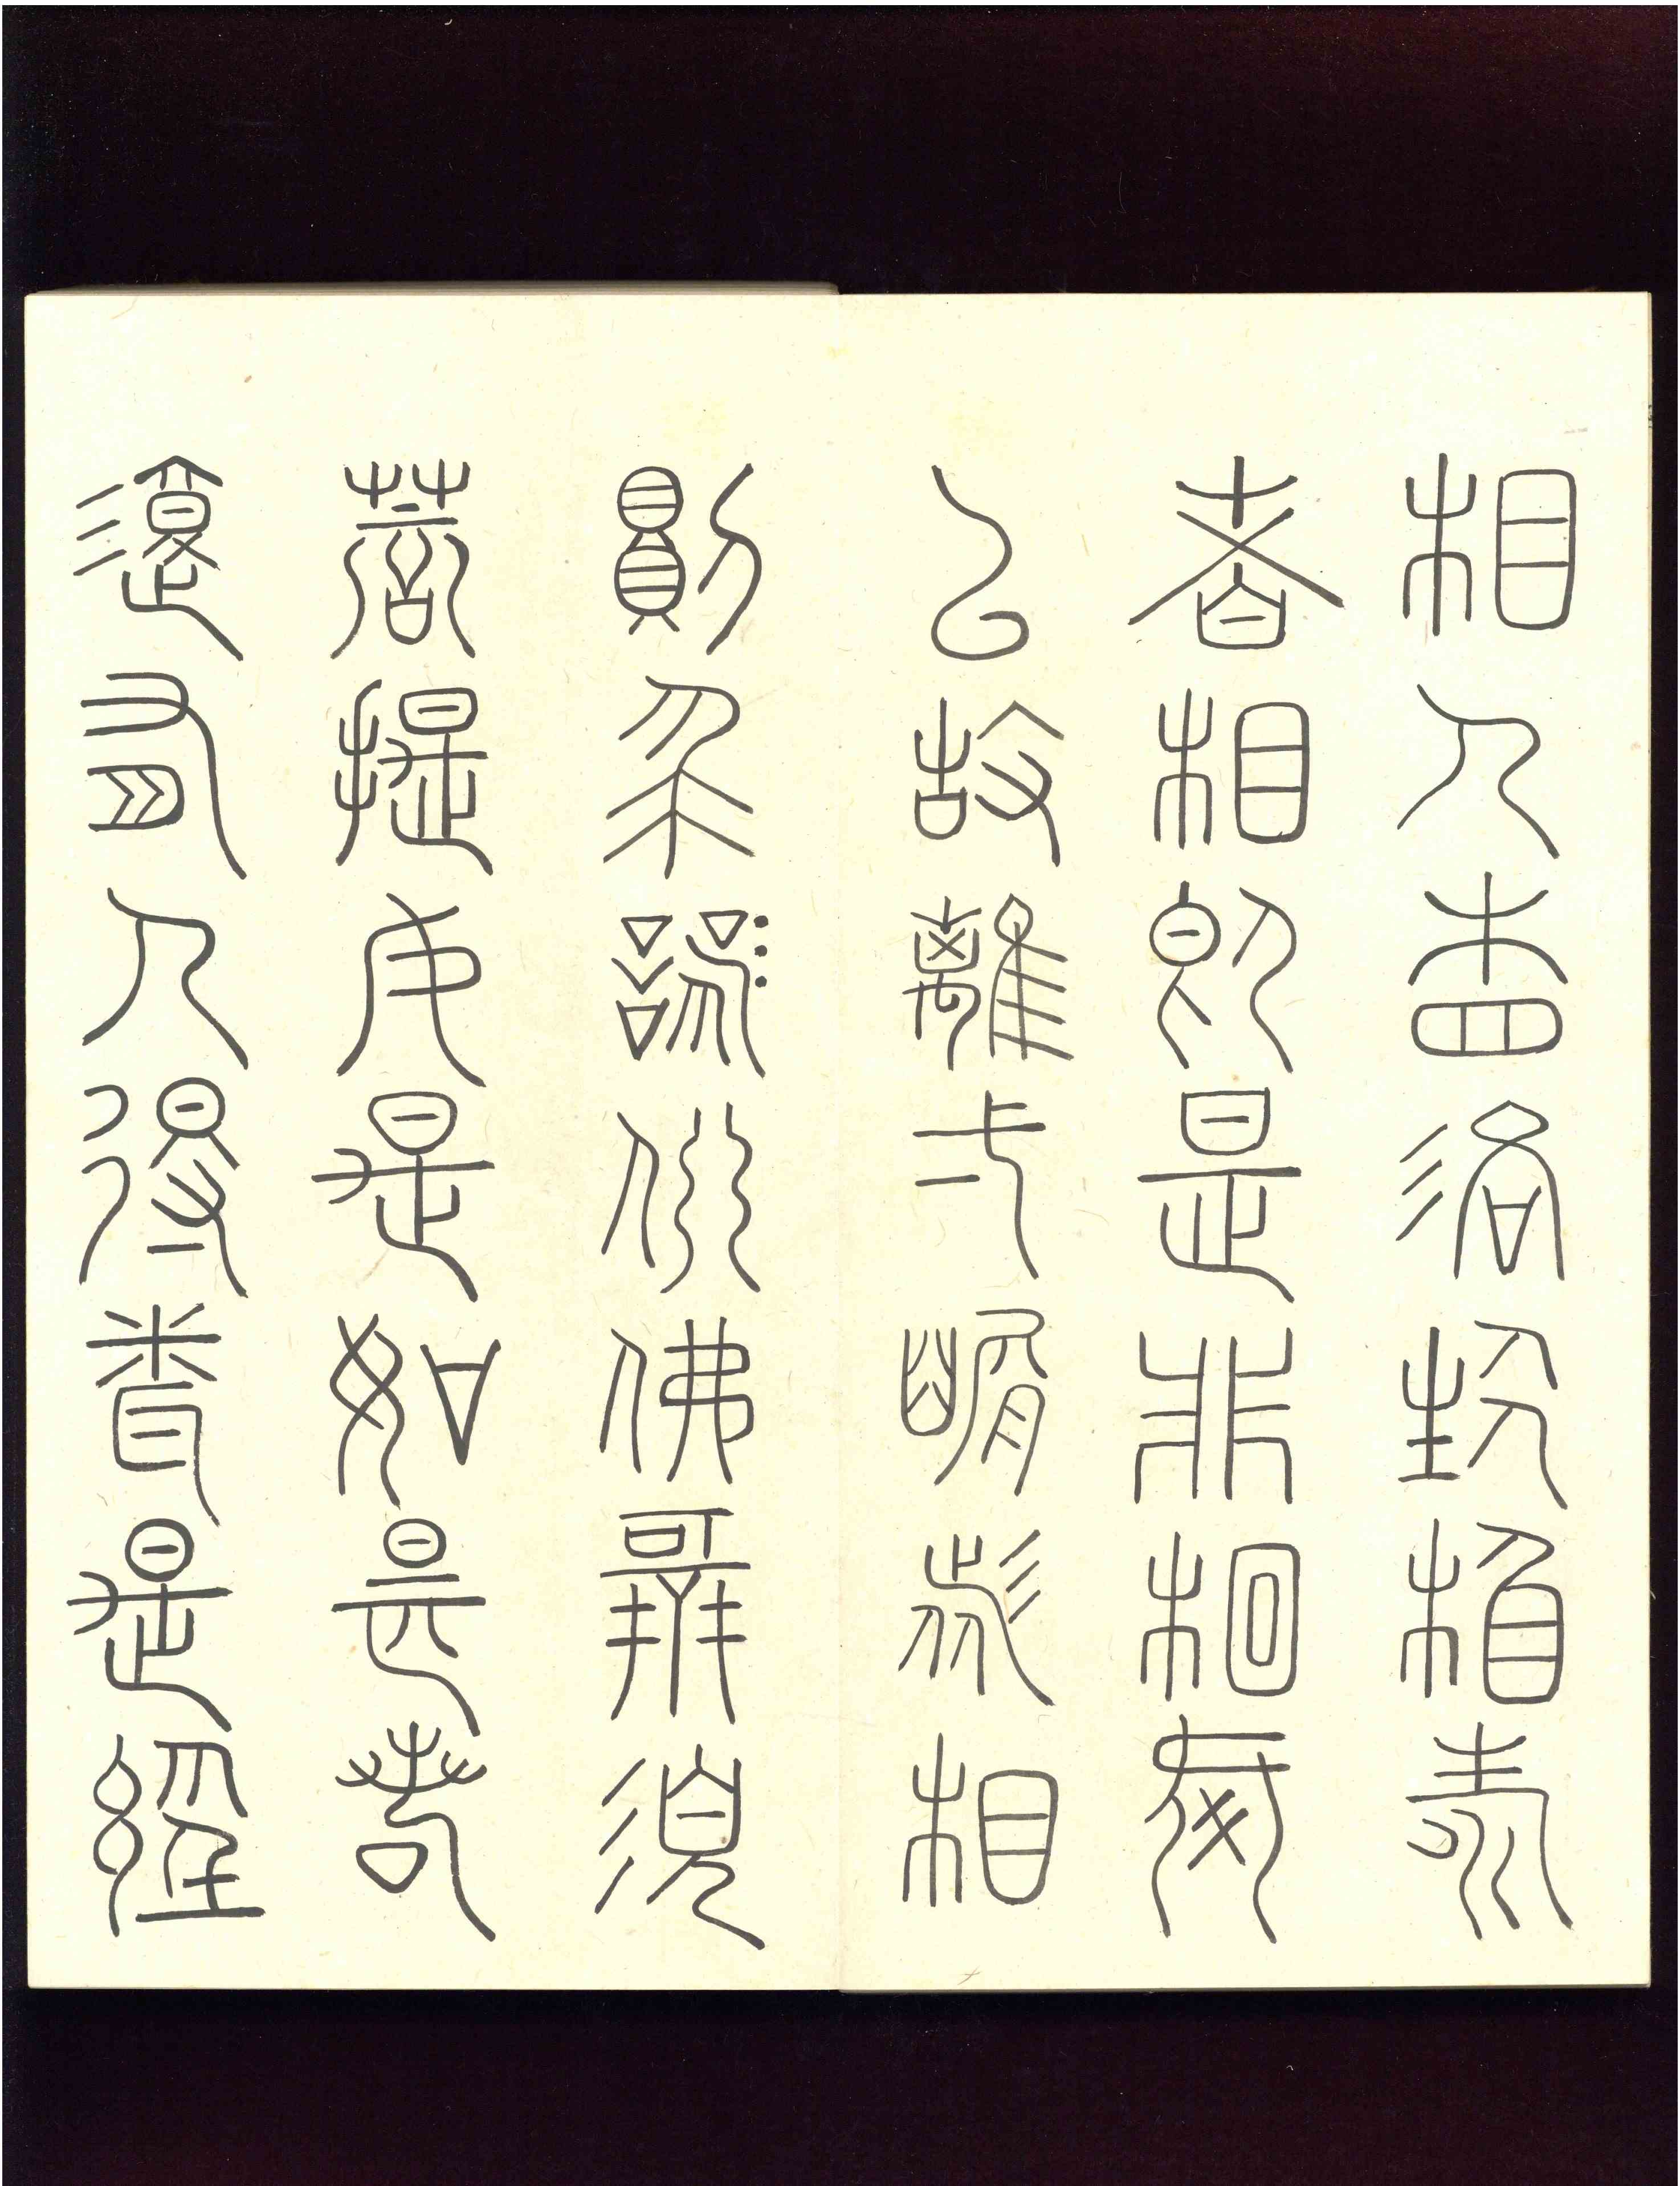 相人相眾生相壽
者相即是非相何
以故離一切諸相
則名諸佛佛告須
菩提如是如是若
復有人得聞是經